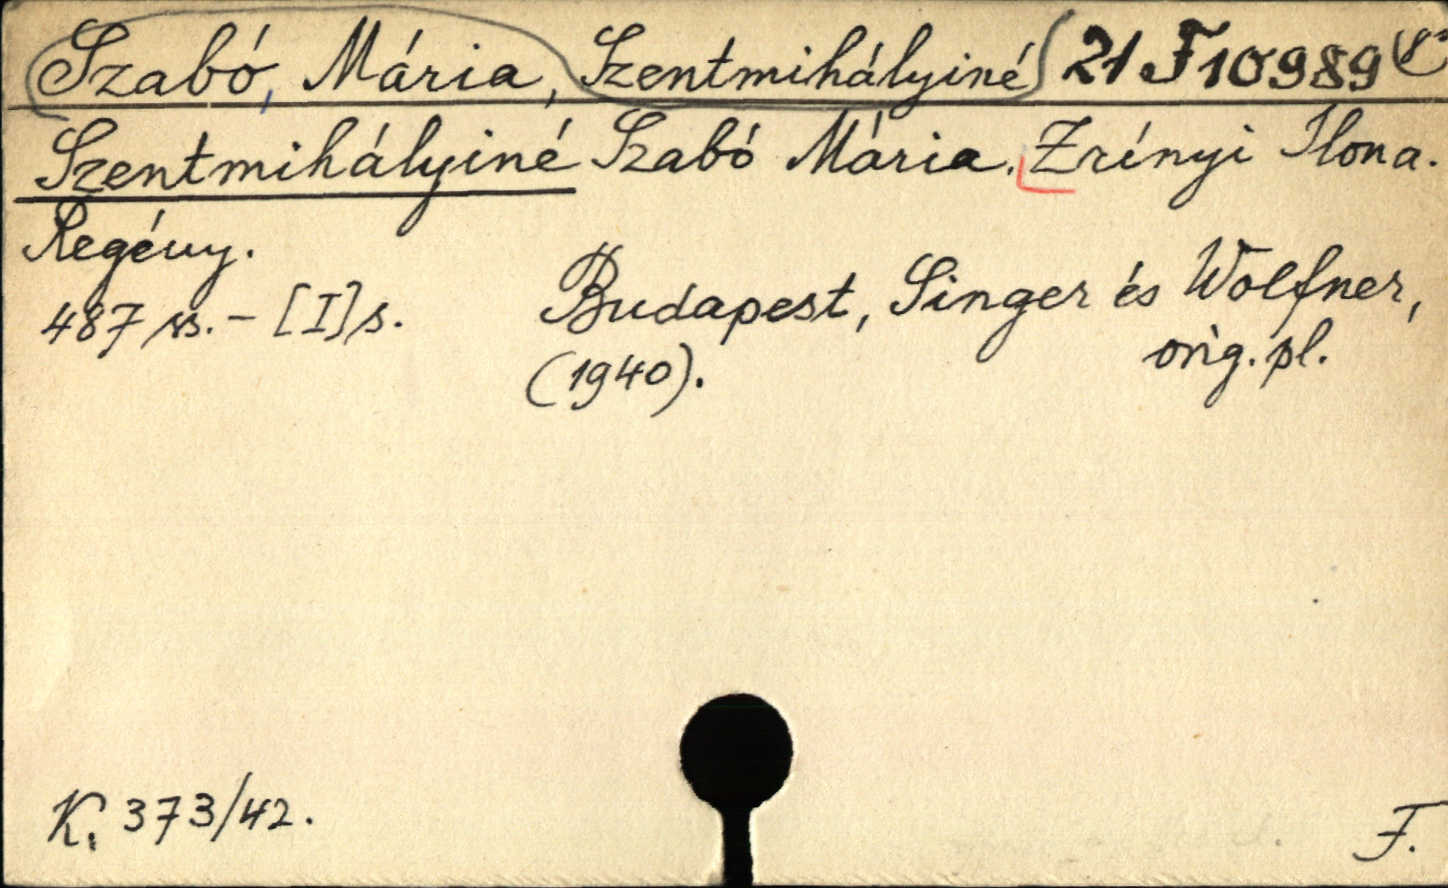 Szabó, Mária, Szentmihályiné 21 F 10989
Szentmihályiné Szabó Mária. Zrínyi Ilona.
Regény.
487 ss. - [I] s. Budapest, Singer és Wolfner,
(1940). orig. pl.
K. 373/42.
F.